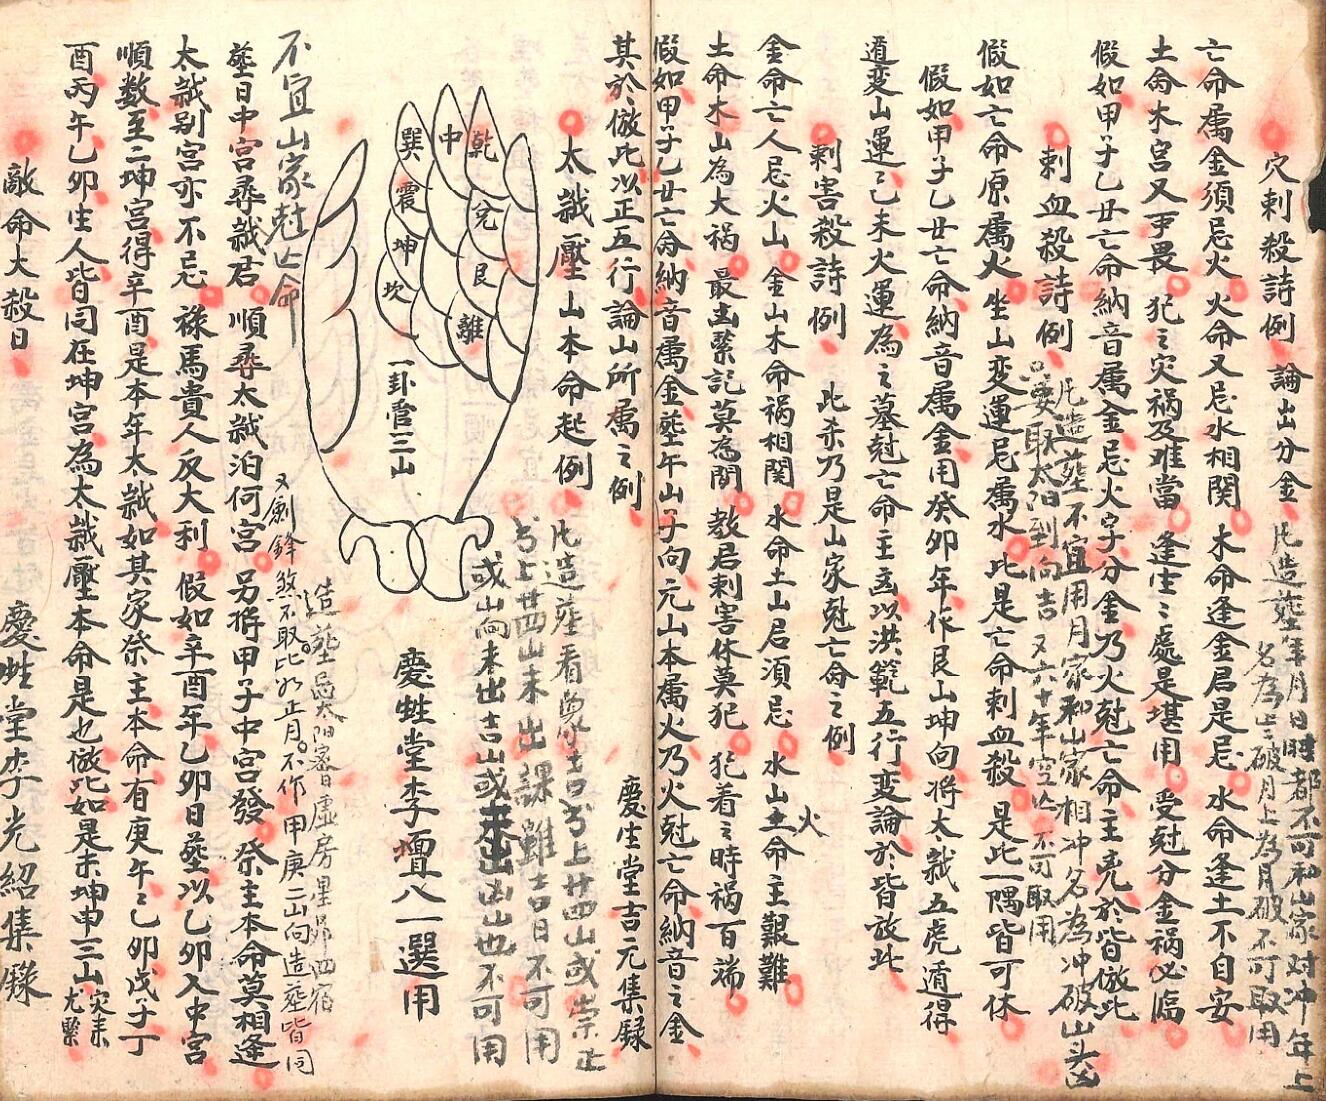 穴刺殺詩例 論出分金
凡造塟年月日時都不可和山家对冲年上
名為山破月上為月破不可取用
亡命属金須忌火 火命又忌水相関 木命逢金君是忌 水命逢土不自安
土命木宮又爭畏 犯之灾禍及难當 逢生之處是堪用 受尅分金禍必臨
假如甲子乙丑亡命納音属金忌火字分金乃火尅亡命主凶於皆倣此
刺血殺詩例
凡造塟不宜用月家和山家相冲名為冲破山头凶
只要取太阳到向吉 又六十年空亡不可取用
假如亡命原属火 坐山变運忌属水 此是亡命刺血殺 是此一隅皆可休
假如甲子乙丑亡命納音属金用癸卯年作艮山坤向将大歲五虎遁得
遁变山運乙未火運為之墓尅亡命主凶以洪範五行变論於皆放此
剌害殺詩例 此杀乃是山家尅亡命之例
金命亡人忌火山 金山木命禍相関 水命土山君須忌 水山火命主艱難
土命木山為大禍 最凶緊記莫為閑 教君刺害休莫犯 犯着之時禍百端
假如甲子乙丑亡命納音属金塟午山子向元山本属火乃火尅亡命納音之金
其於倣此以正五行論山所属之例
慶生堂吉元集録
太歲壓山本命起例
乾
中
巽
兌
震
艮
坤
離
坎
一卦管三山
慶甡堂李壇八一選用
不宜山家尅亡命
又劍鋒煞不取比如正月不作甲庚二山向造塟皆同
造塟忌太阳密日虛房星昴四宿
塟日中宮尋歲君 順尋太歲泊何宮 另将甲子中宮發 祭主本命莫相逢
太歲别宮亦不忌 祿馬貴人反大利 假如辛酉年乙卯日塟以乙卯入中宮
順数至二坤宮得辛酉是本年太歲如其家祭主本命有庚午乙卯戊子丁
酉丙午乙卯生人皆同在坤宮為太歲壓本命是也倣此如是未坤申三山灾来尤緊
敵命大殺日
慶甡堂李光紹集錄